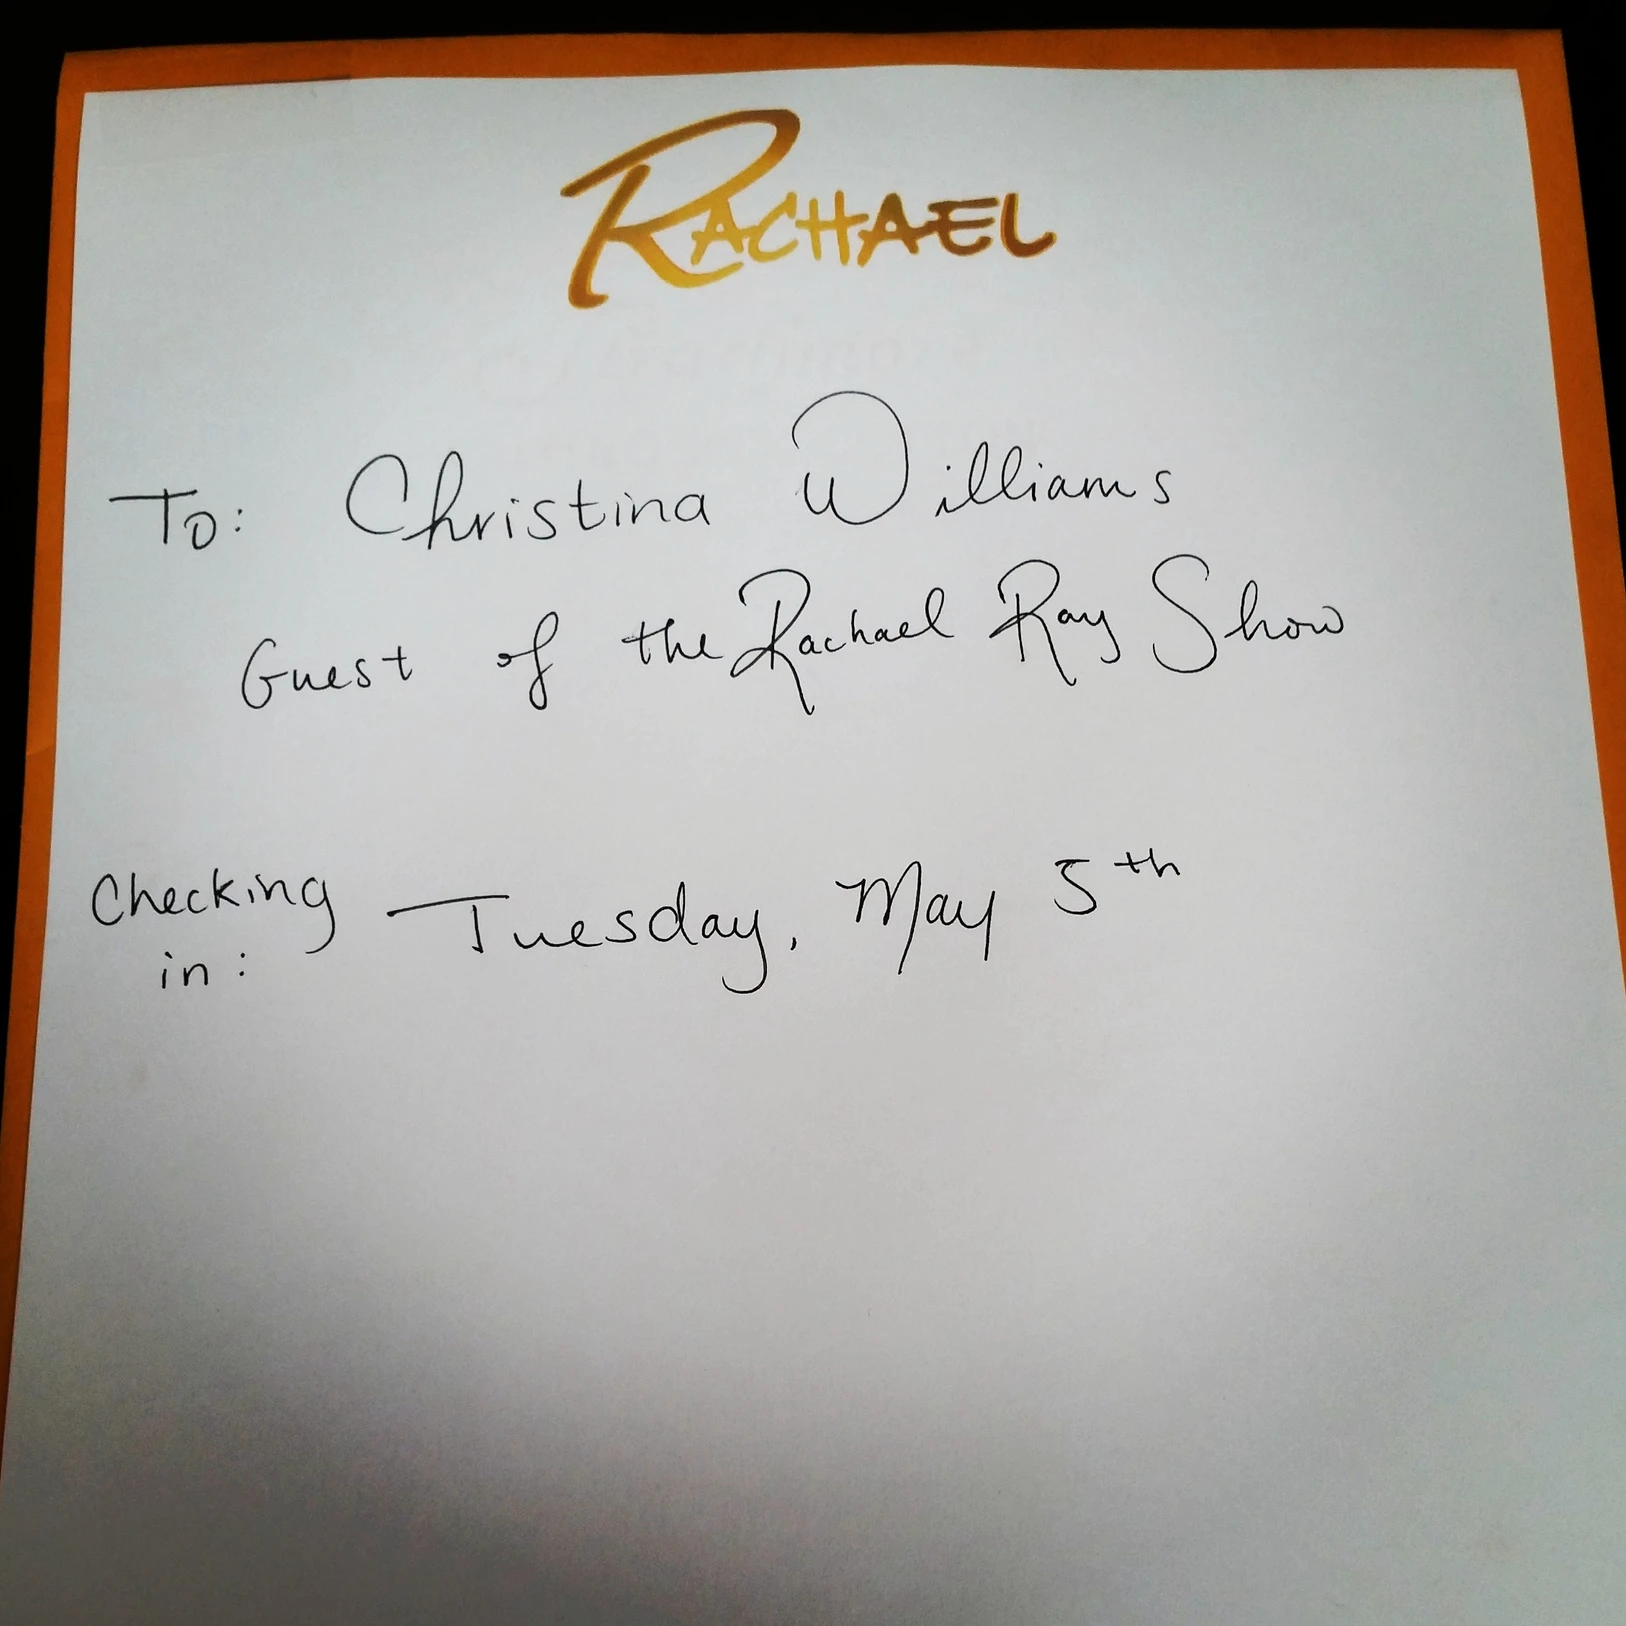 RACHAEL
To: Christina Williams
Guest of the Rachael Ray Show
Checking in: Tuesday, May 5th